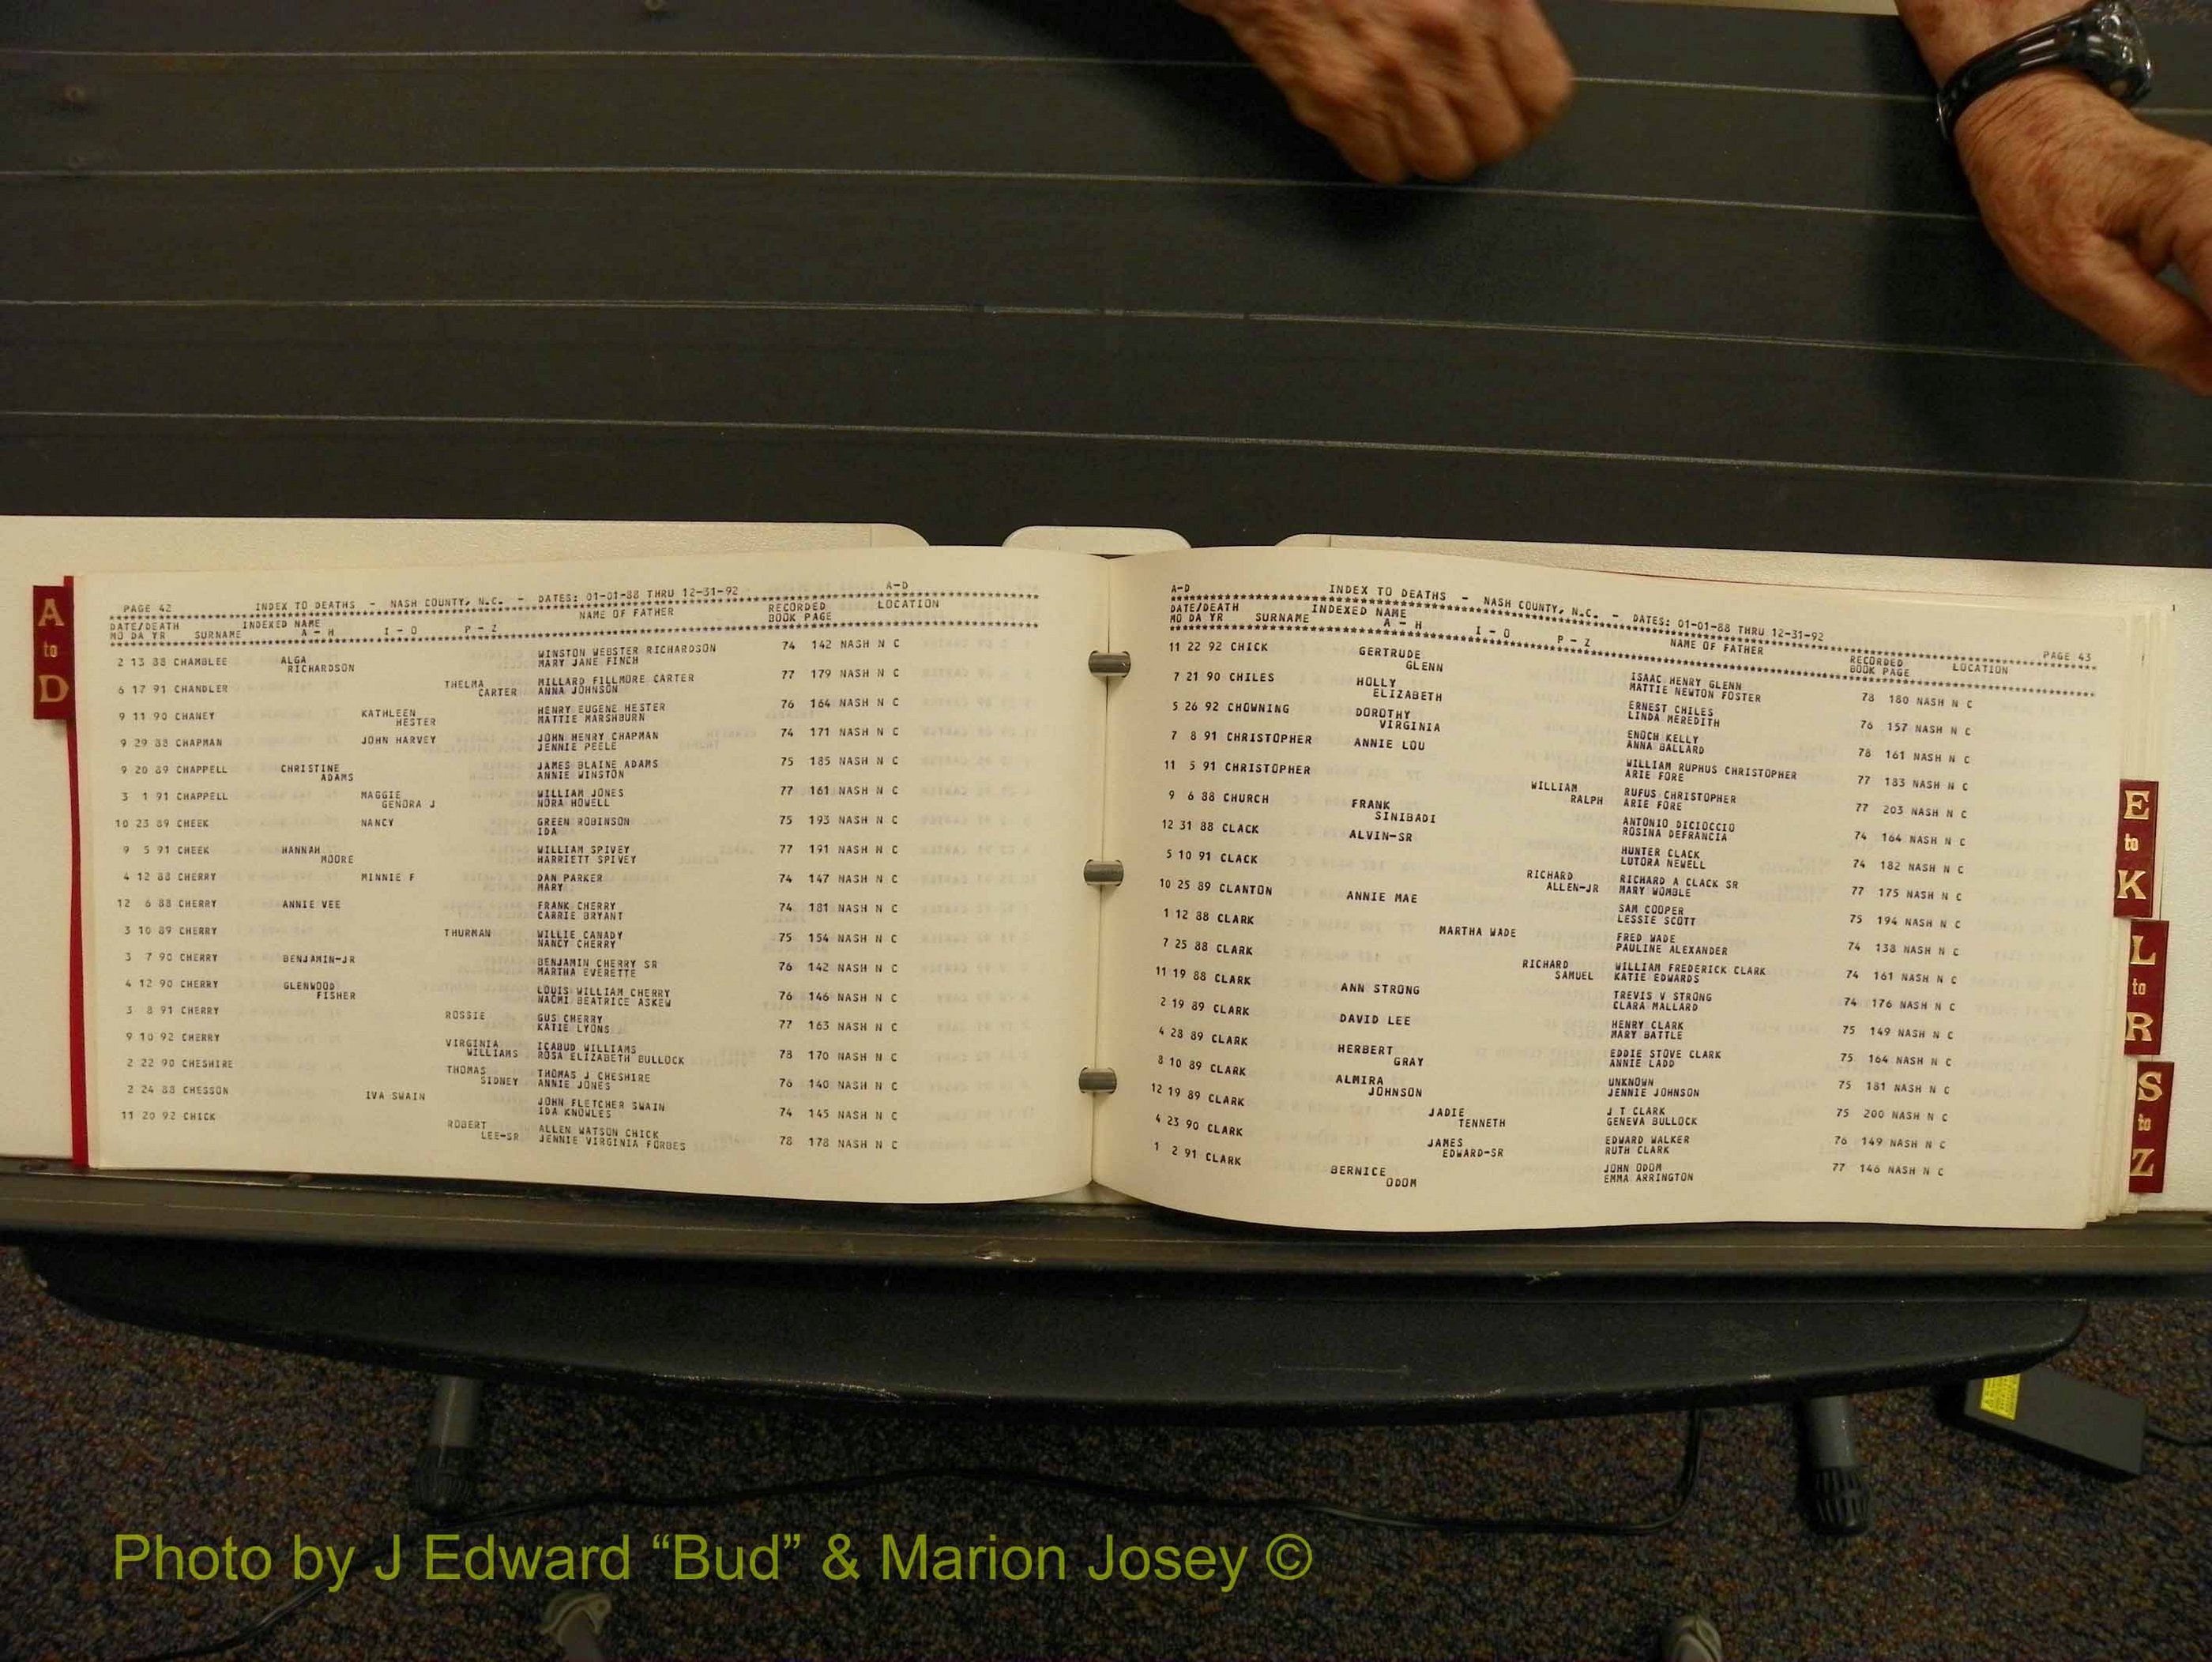 A
to
D
PAGE 42 INDEX TO DEATHS - NASH COUNTY, N.C. - DATES: 01-01-88 THRU 12-31-92 A-D
DATE/DEATH INDEXED NAME NAME OF FATHER RECORDED LOCATION
MO DA YR SURNAME A - H I - O P - Z BOOK PAGE
2 13 88 CHAMBLEE ALGA WINSTON WEBSTER RICHARDSON 74 142 NASH N C
RICHARDSON MARY JANE FINCH
6 17 91 CHANDLER THELMA MILLARD FILLMORE CARTER 77 179 NASH N C
CARTER ANNA JOHNSON
9 11 90 CHANEY KATHLEEN HENRY EUGENE HESTER 76 164 NASH N C
HESTER MATTIE MARSHBURN
9 29 88 CHAPMAN JOHN HARVEY JOHN HENRY CHAPMAN 74 171 NASH N C
JENNIE PEELE
9 20 89 CHAPPELL CHRISTINE JAMES BLAINE ADAMS 75 185 NASH N C
ADAMS ANNIE WINSTON
3 1 91 CHAPPELL MAGGIE WILLIAM JONES 77 161 NASH N C
GENORA J NORA HOWELL
10 23 89 CHEEK NANCY GREEN ROBINSON 75 193 NASH N C
IDA
9 5 91 CHEEK HANNAH WILLIAM SPIVEY 77 191 NASH N C
MOORE HARRIETT SPIVEY
4 12 88 CHERRY MINNIE F DAN PARKER 74 147 NASH N C
MARY
12 6 88 CHERRY ANNIE VEE FRANK CHERRY 74 181 NASH N C
CARRIE BRYANT
3 10 89 CHERRY THURMAN WILLIE CANADY 75 154 NASH N C
NANCY CHERRY
3 7 90 CHERRY BENJAMIN-JR BENJAMIN CHERRY SR 76 142 NASH N C
MARTHA EVERETTE
4 12 90 CHERRY GLENWOOD LOUIS WILLIAM CHERRY 76 146 NASH N C
FISHER NAOMI BEATRICE ASKEW
3 8 91 CHERRY ROSSIE GUS CHERRY 77 163 NASH N C
KATIE LYONS
9 10 92 CHERRY VIRGINIA ICABUD WILLIAMS 78 170 NASH N C
WILLIAMS ROSA ELIZABETH BULLOCK
2 22 90 CHESHIRE THOMAS THOMAS J CHESHIRE 76 140 NASH N C
SIDNEY ANNIE JONES
2 24 88 CHESSON IVA SWAIN JOHN FLETCHER SWAIN 74 145 NASH N C
IDA KNOWLES
11 20 92 CHICK ROBERT ALLEN WATSON CHICK 78 178 NASH N C
LEE-SR JENNIE VIRGINIA FORBES
A-D INDEX TO DEATHS - NASH COUNTY, N.C. - DATES: 01-01-88 THRU 12-31-92 PAGE 43
DATE/DEATH INDEXED NAME NAME OF FATHER RECORDED LOCATION
MO DA YR SURNAME A - H I - O P - Z BOOK PAGE
11 22 92 CHICK GERTRUDE ISAAC HENRY GLENN 78 180 NASH N C
GLENN MATTIE NEWTON FOSTER
7 21 90 CHILES HOLLY ERNEST CHILES 76 157 NASH N C
ELIZABETH LINDA MEREDITH
5 26 92 CHOWNING DOROTHY ENOCH KELLY 78 161 NASH N C
VIRGINIA ANNA BALLARD
7 8 91 CHRISTOPHER ANNIE LOU WILLIAM RUPHUS CHRISTOPHER 77 183 NASH N C
ARIE FORE
11 5 91 CHRISTOPHER WILLIAM RUFUS CHRISTOPHER 77 203 NASH N C
RALPH ARIE FORE
9 6 88 CHURCH FRANK ANTONIO DICIOCCIO 74 164 NASH N C
SINIBADI ROSINA DEFRANCIA
12 31 88 CLACK ALVIN-SR HUNTER CLACK 74 182 NASH N C
LUTORA NEWELL
5 10 91 CLACK RICHARD RICHARD A CLACK SR 77 175 NASH N C
ALLEN-JR MARY WOMBLE
10 25 89 CLANTON ANNIE MAE SAM COOPER 75 194 NASH N C
LESSIE SCOTT
1 12 88 CLARK MARTHA WADE FRED WADE 74 138 NASH N C
PAULINE ALEXANDER
7 25 88 CLARK RICHARD WILLIAM FREDERICK CLARK 74 161 NASH N C
SAMUEL KATIE EDWARDS
11 19 88 CLARK ANN STRONG TREVIS V STRONG 74 176 NASH N C
CLARA MALLARD
2 19 89 CLARK DAVID LEE HENRY CLARK 75 149 NASH N C
MARY BATTLE
4 28 89 CLARK HERBERT EDDIE STOVE CLARK 75 164 NASH N C
GRAY ANNIE LADD
8 10 89 CLARK ALMIRA UNKNOWN 75 181 NASH N C
JOHNSON JENNIE JOHNSON
12 19 89 CLARK JADIE J T CLARK 75 200 NASH N C
TENNETH GENEVA BULLOCK
4 23 90 CLARK JAMES EDWARD WALKER 76 149 NASH N C
EDWARD-SR RUTH CLARK
1 2 91 CLARK BERNICE JOHN ODOM 77 146 NASH N C
ODOM EMMA ARRINGTON
E
to
K
L
to
R
S
to
Z
Photo by J Edward “Bud” & Marion Josey ©